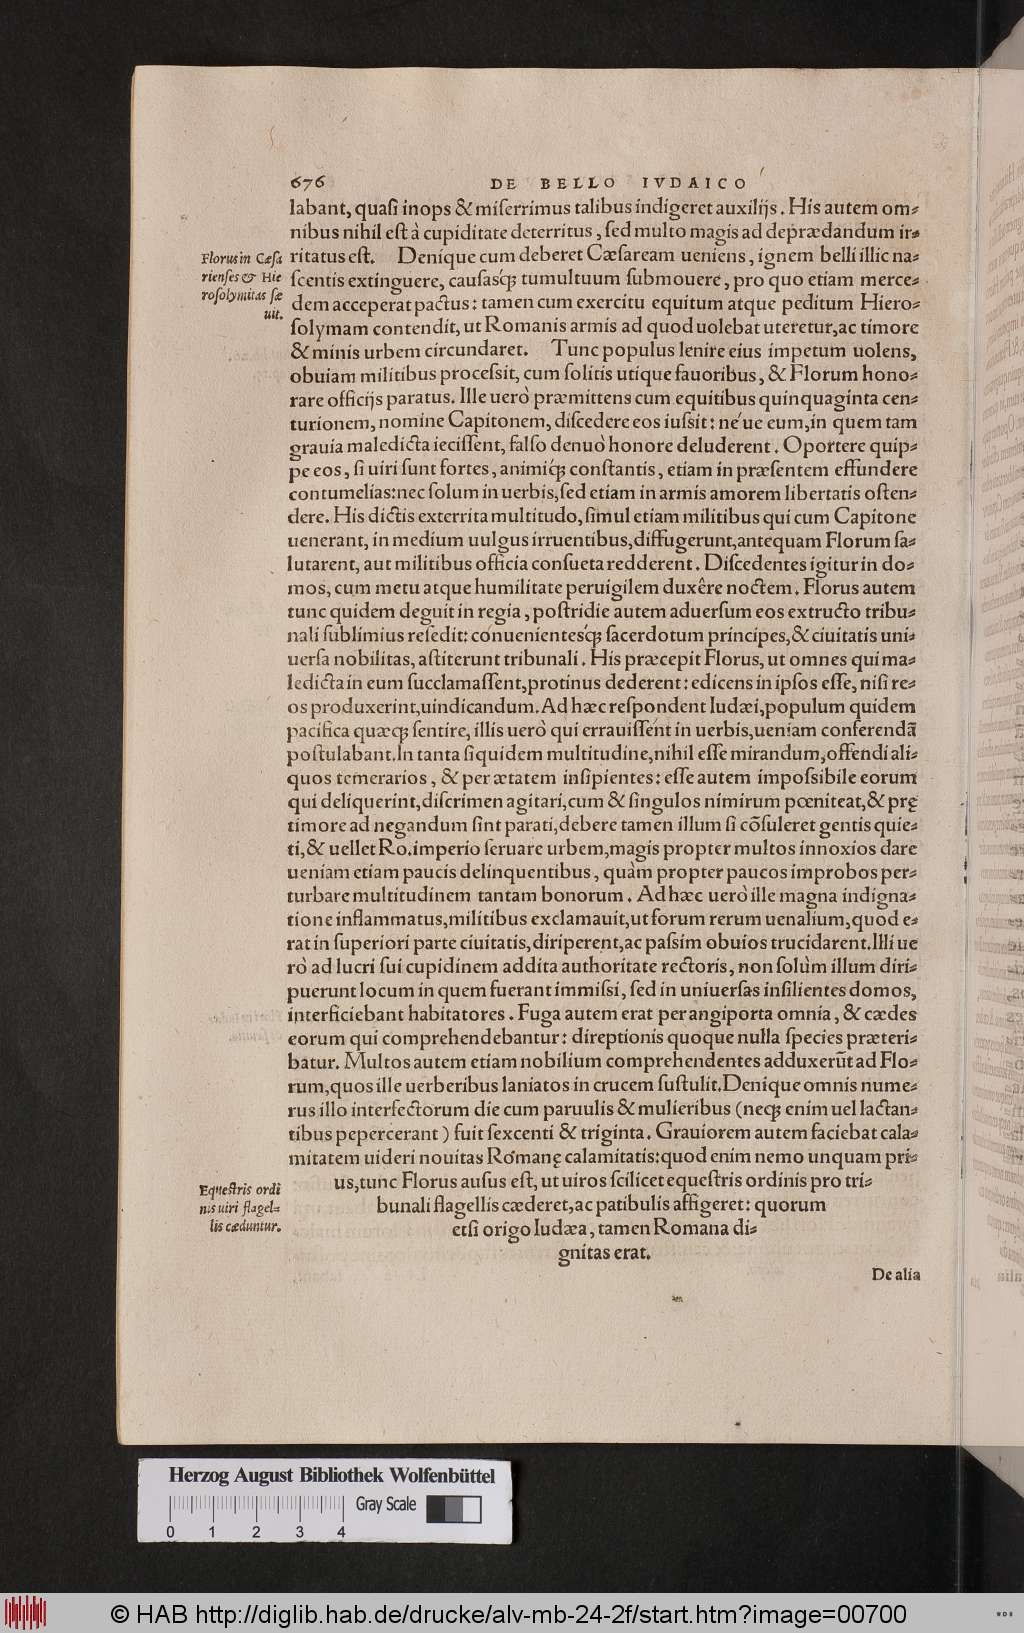 676 DE BELLO IVDAICO
labant, quaſi inops & miſerrimus talibus indigeret auxilijs. His autem om⸗
nibus nihil eſt à cupiditate deterritus, ſed multo magis ad deprædandum ir⸗
ritatus eſt. Denique cum deberet Cæſaream ueniens, ignem belli illic na⸗
ſcentis extinguere, cauſasq́; tumultuum ſubmouere, pro quo etiam merce⸗
dem acceperat pactus: tamen cum exercitu equitum atque peditum Hiero⸗
ſolymam contendit, ut Romanis armis ad quod uolebat uteretur, ac timore
& minis urbem circundaret. Tunc populus lenire eius impetum uolens,
obuiam militibus proceſsit, cum ſolitis utique fauoribus, & Florum hono⸗
rare officijs paratus. Ille uerò præmittens cum equitibus quinquaginta cen⸗
turionem, nomine Capitonem, diſcedere eos iuſsit: né ue eum, in quem tam
grauia maledicta ieciſſent, falſo denuò honore deluderent. Oportere quip⸗
pe eos, ſi uiri ſunt fortes, animiq́; conſtantis, etiam in præſentem effundere
contumelias: nec ſolum in uerbis, ſed etiam in armis amorem libertatis oſten⸗
dere. His dictis exterrita multitudo, ſimul etiam militibus qui cum Capitone
uenerant, in medium uulgus irruentibus, diffugerunt, antequam Florum ſa⸗
lutarent, aut militibus officia conſueta redderent. Diſcedentes igitur in do⸗
mos, cum metu atque humilitate peruigilem duxêre noctem. Florus autem
tunc quidem deguit in regia, poſtridie autem aduerſum eos extructo tribu⸗
nali ſublimius reſedit: conuenientesq́; ſacerdotum principes, & ciuitatis uni⸗
uerſa nobilitas, aſtiterunt tribunali. His præcepit Florus, ut omnes qui ma⸗
ledicta in eum ſucclamaſſent, protinus dederent: edicens in ipſos eſſe, niſi re⸗
os produxerint, uindicandum. Ad hæc reſpondent Iudæi, populum quidem
pacifica quæq; ſentire, illis uerò qui errauiſſent in uerbis, ueniam conferendã
poſtulabant. In tanta ſiquidem multitudine, nihil eſſe mirandum, offendi ali⸗
quos temerarios, & per ætatem inſipientes: eſſe autem impoſsibile eorum
qui deliquerint, diſcrimen agitari, cum & ſingulos nimirum pœniteat, & prę
timore ad negandum ſint parati, debere tamen illum ſi cõſuleret gentis quie⸗
ti, & uellet Ro. imperio ſeruare urbem, magis propter multos innoxios dare
ueniam etiam paucis delinquentibus, quàm propter paucos improbos per⸗
turbare multitudinem tantam bonorum. Ad hæc uerò ille magna indigna⸗
tione inflammatus, militibus exclamauit, ut forum rerum uenalium, quod e⸗
rat in ſuperiori parte ciuitatis, diriperent, ac paſsim obuios trucidarent. Illi ue
rò ad lucri ſui cupidinem addita authoritate rectoris, non ſolùm illum diri⸗
puerunt locum in quem fuerant immiſsi, ſed in uniuerſas inſilientes domos,
interficiebant habitatores. Fuga autem erat per angiporta omnia, & cædes
eorum qui comprehendebantur: direptionis quoque nulla ſpecies præteri⸗
batur. Multos autem etiam nobilium comprehendentes adduxerũt ad Flo⸗
rum, quos ille uerberibus laniatos in crucem ſuſtulit. Denique omnis nume⸗
rus illo interfectorum die cum paruulis & mulieribus (neq; enim uel lactan⸗
tibus pepercerant) fuit ſexcenti & triginta. Grauiorem autem faciebat cala⸗
mitatem uideri nouitas Romanę calamitatis: quod enim nemo unquam pri⸗
us, tunc Florus auſus eſt, ut uiros ſcilicet equeſtris ordinis pro tri⸗
bunali flagellis cæderet, ac patibulis affigeret: quorum
etſi origo Iudæa, tamen Romana di⸗
gnitas erat.
De alia
Florus in Cæſa
rienſes & Hie
roſolymitas ſæ
uit.
Equeſtris ordi
nis uiri flagel⸗
lis cæduntur.
Herzog August Bibliothek Wolfenbüttel
Gray Scale
0 1 2 3 4
© HAB http://diglib.hab.de/drucke/alv-mb-24-2f/start.htm?image=00700